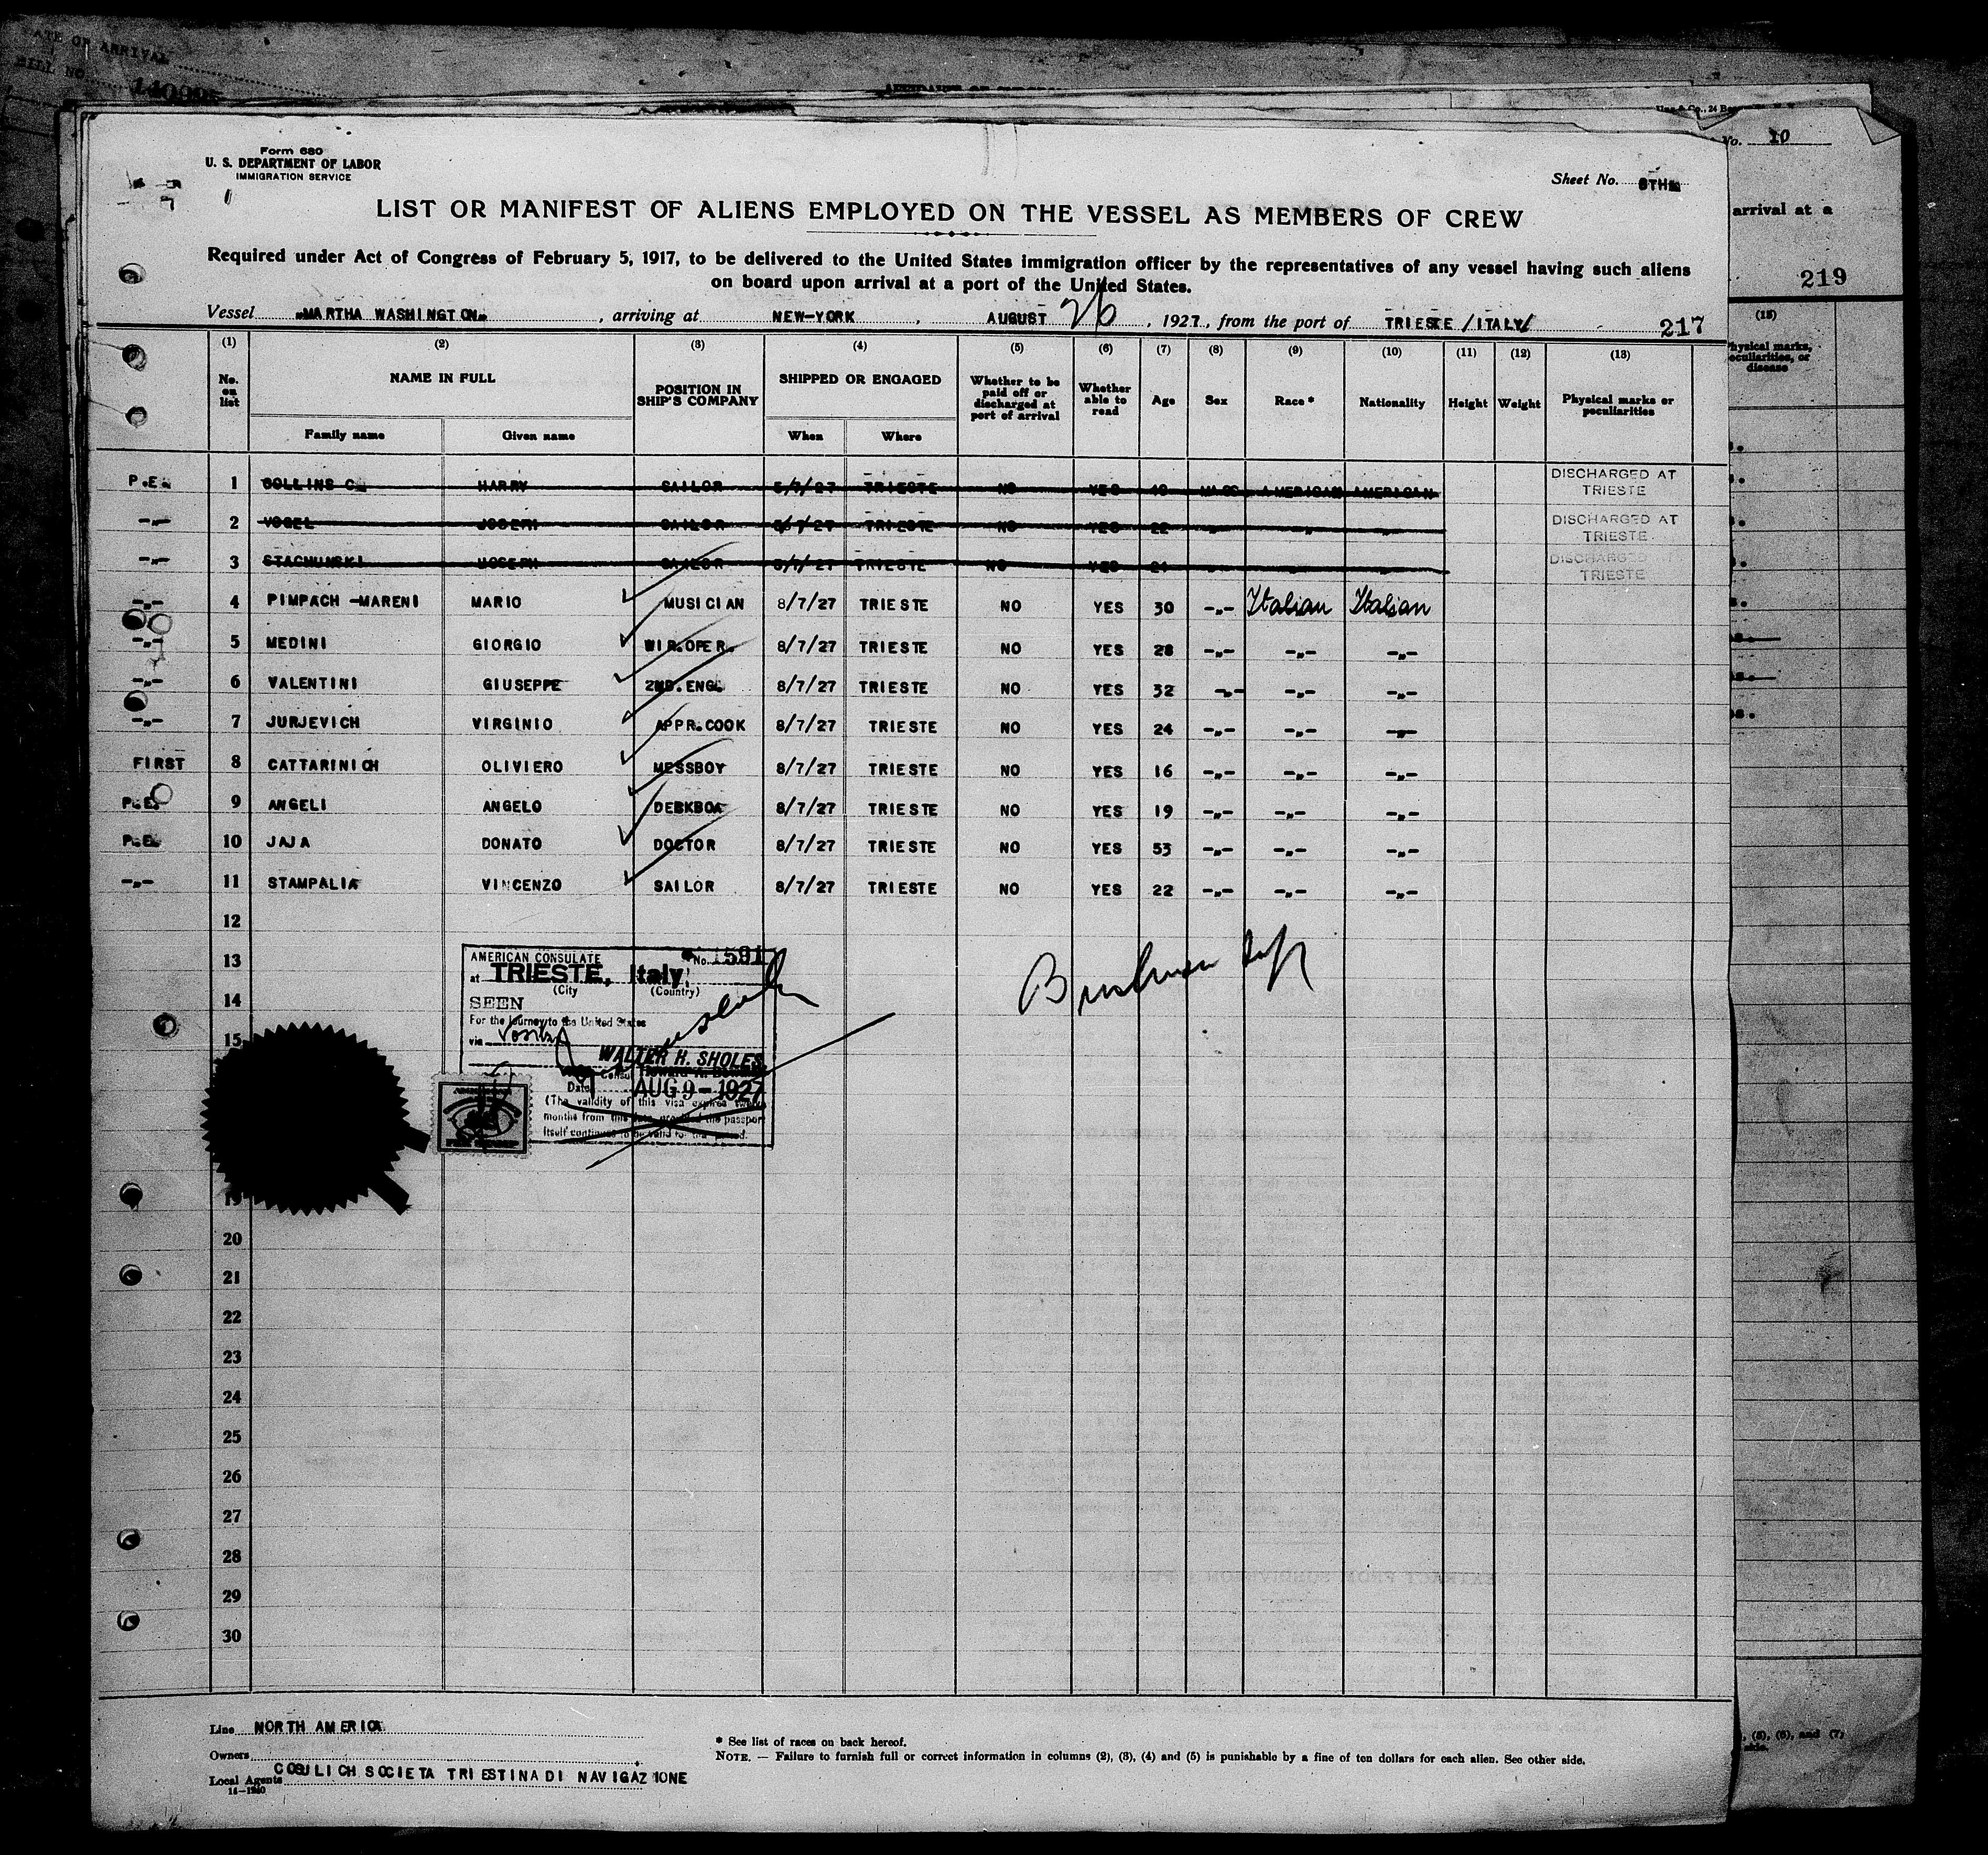 DATE OF ARRIVAL
BILL NO.
No. 10
arrival at a
219
(15)
Physical marks, peculiarities, or disease
Form 680
U. S. DEPARTMENT OF LABOR
IMMIGRATION SERVICE
Sheet No. 6TH
LIST OR MANIFEST OF ALIENS EMPLOYED ON THE VESSEL AS MEMBERS OF CREW
Required under Act of Congress of February 5, 1917, to be delivered to the United States immigration officer by the representatives of any vessel having such aliens
on board upon arrival at a port of the United States.
Vessel "MARTHA WASHINGTON", arriving at NEW-YORK, AUGUST 26, 1927, from the port of TRIESTE /ITALY/ 217
(1) (2) (3) (4) (5) (6) (7) (8) (9) (10) (11) (12) (13)
No. on list NAME IN FULL POSITION IN SHIP'S COMPANY SHIPPED OR ENGAGED Whether to be paid off or discharged at port of arrival Whether able to read Age Sex Race * Nationality Height Weight Physical marks or peculiarities
Family name Given name When Where
P.E. 1 COLLINS C. HARRY SAILOR 5/7/27 TRIESTE NO YES MASC AMERICAN AMERICAN DISCHARGED AT TRIESTE
-"- 2 VOGEL JOSEPH SAILOR 5/7/27 TRIESTE NO YES 22 -"- " " DISCHARGED AT TRIESTE
-"- 3 STACHUNSKI JOSEPH SAILOR 5/7/27 TRIESTE NO YES 21 -"- -"- -"- DISCHARGED AT TRIESTE
-"- 4 PIMPACH -MARENI MARIO MUSICIAN 8/7/27 TRIESTE NO YES 30 -"- Italian Italian
-"- 5 MEDINI GIORGIO WIR.OPER. 8/7/27 TRIESTE NO YES 28 -"- -"- -"-
-"- 6 VALENTINI GIUSEPPE 2ND.ENG. 8/7/27 TRIESTE NO YES 32 -"- -"- -"-
-"- 7 JURJEVICH VIRGINIO APPR.COOK 8/7/27 TRIESTE NO YES 24 -"- -"- -"-
FIRST 8 CATTARINICH OLIVIERO MESSBOY 8/7/27 TRIESTE NO YES 16 -"- -"- -"-
P.E. 9 ANGELI ANGELO DEKKBOA 8/7/27 TRIESTE NO YES 19 -"- -"- -"-
P.E. 10 JAJA DONATO DOCTOR 8/7/27 TRIESTE NO YES 53 -"- -"- -"-
-"- 11 STAMPALIA VINCENZO SAILOR 8/7/27 TRIESTE NO YES 22 -"- -"- -"-
12
13
14
15
AMERICAN CONSULATE No. 1591
at TRIESTE, Italy
(City (Country)
SEEN
For the journey to the United States
via
WALTER H. SHOLES
Consul
Date AUG 9 - 1927
(The validity of this visa expires twelve
months from this date provided the passport
itself continues to be valid for that period.
19
20
21
22
23
24
25
26
27
28
29
30
Line NORTH AMERICA
Owners
Local Agents COSULICH SOCIETA TRIESTINA DI NAVIGAZIONE
14-1240
* See list of races on back hereof.
NOTE. — Failure to furnish full or correct information in columns (2), (3), (4) and (5) is punishable by a fine of ten dollars for each alien. See other side.
, (5), (6), and (7)
side.